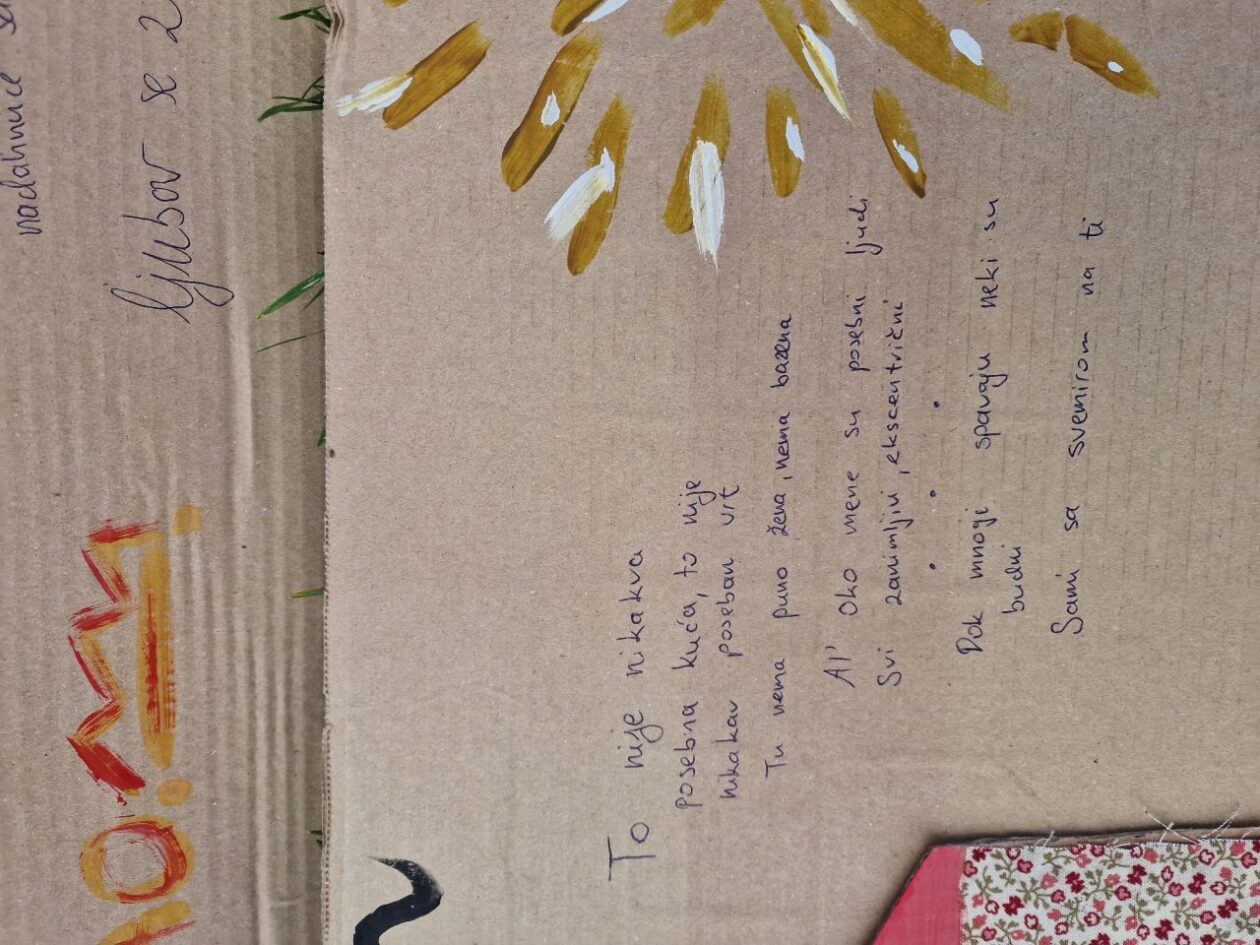 nadahnuće
ljubav se
To nije nikakva
posebna kuća, to nije
nikakav poseban vrt
Tu nema puno žena, nema bazena
Al' Oko mene su posebni ljudi
Svi zanimljivi, ekscentrični
. . .
Dok mnogi spavaju neki su
budni
Sami sa svemirom na ti